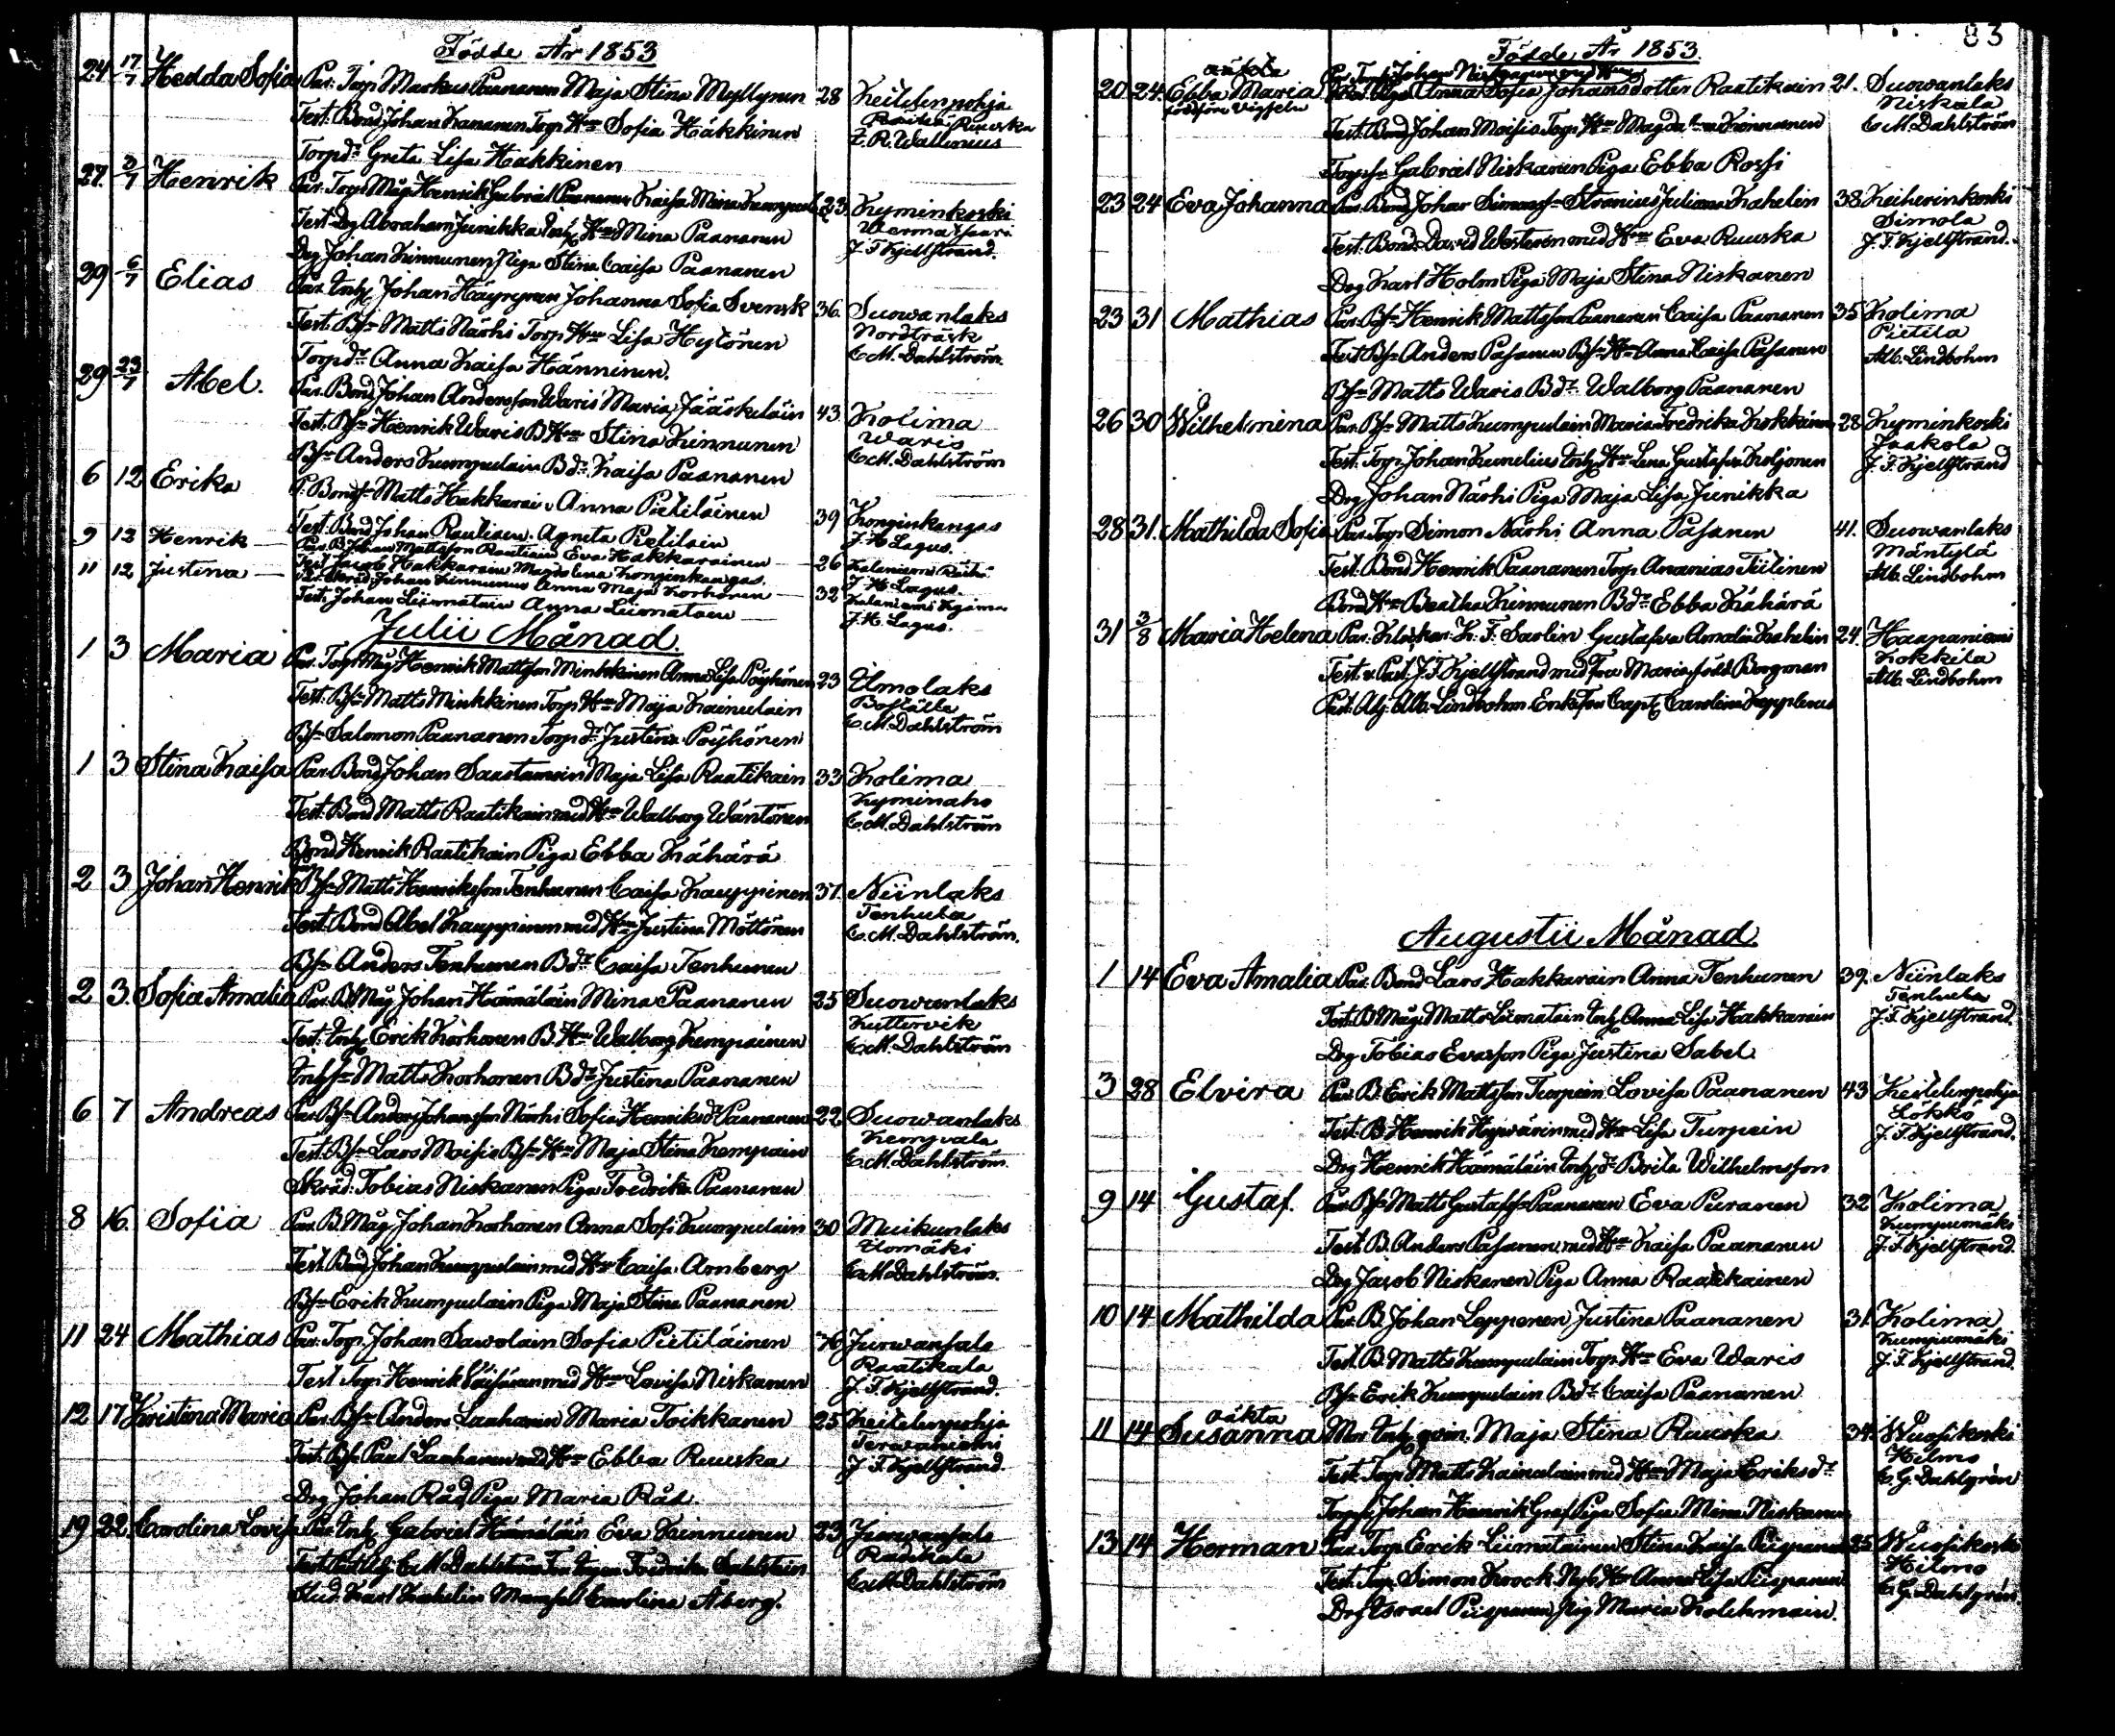 Födde År 1853
24 17/7 Hedda Sofia Par. Torp. Markus Paananen Maja Stina Myllynen 28 Keitelenpohja
Test. Bond Johan Kananen Torp. Hru Sofia Häkkinen Ruuska
Torpdr Greta Lisa Häkkinen Z. R. Wallonius
27. 3/7 Henrik Par. Torp. Måg Henrik Gabriel Paananen Kaisa Mina Kumpulain 23. Kyminkoski
Test. Drg Abraham Junikka Inh. Hru Mina Paananen
Drg Johan Kinnunen Piga Stina Caisa Paananen J. F. Kjellstrand.
29 6/7 Elias Par. Inh. Johan Häyrynen Johanna Sofia Svensk 36. Suowanlaks
Test. Bsn Matts Närhi Torp. Hru Lisa Hytönen Nordträsk
Torpdr Anna Kaisa Hänninen. C. M. Dahlström.
29 23/7 Abel. Par. Bond Johan Andersson Waris Maria Jääskeläin 43 Kolima
Test. Bsn Henrik Waris B Hru Stina Kinnunen Waris
Bsn Anders Kumpulain Bdr Kaisa Paananen C. M. Dahlström
6 12 Erika P. Bonds. Matts Hakkarain. Anna Pietiläinen 39 Konginkangas
Test. Bond Johan Rautiain. Agneta Pietilain J. H. Lagus.
9 12 Henrik Par. B. Johan Mattsson Rautiain Eva Hakkarainen 26
Test. Jacob Hakkarain Magdalena Konginkangas. J. H. Lagus.
11 12 Justina Par. Bond. Johan Kinnunen Anna Maja Korhonen 32
Test. Johan Liimatain Anna Liimatain J. H. Lagus.
Julii Månad.
1 3 Maria Par. Torp. Måg Henrik Mattsson Minkkinen Anna Lisa Pöyhönen 23 Umolaks
Test. Bsn Matts Minkkinen Torp. Hru Maja Kainulain Boställe
Bsn Salomon Paananen Torpdr Justina Pöyhönen C. M. Dahlström
1 3 Stina Kaisa Par. Bond Johan Saastamoin Maja Lisa Raatikain 33. Kolima
Test. Bond Matts Raatikain med Hru Walborg Wäntönen Kyminaho
Bond Henrik Raatikain Piga Ebba Kähärä C. M. Dahlström
2 3 Johan Henrik Bsn Matts Henriksson Tenhunen Caisa Kauppinen 37. Niinlaks
Test. Bond Abel Kauppinen med Hru Justina Möttönen Tenhula
Bsn Anders Tenhunen Bdr Caisa Tenhunen C. M. Dahlström.
2 3. Sofia Amalia Par. B. Måg Johan Hämäläin Mina Paananen 25 Suowanlaks
Test. Inh. Erik Korhonen B. Hru Walborg Kempainen Kuttervik
Inhsn Matts Korhonen Bdr Justina Paananen C. M. Dahlström
6 7 Andreas Par. Bsn Anders Johansson Närhi Sofia Henriksdr Paananen 22 Suowanlaks
Test. Bsn Lars Moisio Bsn Hru Maja Stina Kempain
Skräd. Tobias Niskanen Piga Fredrika Paananen C. M. Dahlström.
8 16. Sofia Par. B. Måg Johan Korhonen Anna Sofi Kumpulain 30 Muikunlaks
Test. Bond Johan Kumpulain med Hru Caisa Arnberg Ilomäki
Bsn Erik Kumpulain Piga Maja Stina Paananen C. M. Dahlström.
11 24 Mathias Par. Torp. Johan Sawolain Sofia Pietiläinen Jurwansalo
Test Torp. Henrik Väisänen med Hru Lovisa Niskanen Raatikala
J. F. Kjellstrand.
12 17 Kristina Maria Par. Bsn Anders Laahanen Maria Toikkanen 25 Keitelenpohja
Test. Bsn Paul Laahanen med Hru Ebba Ruuska Terwaniemi
Drg Johan Råd Piga Maria Råd. J. F. Kjellstrand
19 22 Carolina Lovisa Par. Inh. Gabriel Hämäläin Eva Kinnunen 23 Jurwansalo
Test. C. M. Dahlström Fredrika Sahlstein Raatikala
Stud. Karl Kahelin Mamsell Carolina Åberg. C. M. Dahlström
83
Födde År 1853.
oäkta
Par. Torp. Johan Niskanen med Hru
20 24. Ebba Maria Anna Sofia Johansdotter Raatikain 21. Suowanlaks
född före vigseln Test. Bond Johan Moisio Torp. Hru Magdalena Kinnunen Niskala
Torpsn Gabriel Niskanen Piga Ebba Rossi C. M. Dahlström
23 24 Eva Johanna Par. Bond Johan Simonss. Stranius Juliana Kahelin 38 Keiherinkoski
Test. Bond. David Westeren med Hru Eva Ruuska Simola
Drg Karl Holm Piga Maja Stina Niskanen J. F. Kjellstrand.
23 31 Mathias Par. Bsn Henrik Mattsson Paananen Caisa Paananen 35 Kolima
Test Bsn Anders Pasanen Bsn Hru Anna Caisa Pasanen Pietila
Bsn Matts Waris Bdr Walborg Paananen Alb. Lindbohm
26 30 Wilhelmina Par. Bsn Matts Kumpulain Maria Fredrika Kokkainen 28 Kyminkoski
Test. Torp. Johan Kumelius Inh. Hru Lena Gustafva Koljonen Jaakola
Drg Johan Närhi Piga Maja Lisa Junikka J. F. Kjellstrand
28 31. Mathilda Sofia Par. Torp. Simon Närhi Anna Pasanen 41. Suowanlaks
Test. Bond Henrik Paananen Torp. Ananias Tiilinen Mäntylä
Bond Hru Beatha Kinnunen Bdr Ebba Kähärä Alb. Lindbohm
31 3/8 Maria Helena Par. Klockar. K. F. Sarlin Gustafva Amalia Kahelin 24. Haapaniemi
Test. v. Past. J. F. Kjellstrand med Fru Maria född Borgman Kokkila
Past. Adj. Alb. Lindbohm Enkefru Capt. Carolina Kepplerus Alb. Lindbohm
Augustii Månad.
1 14 Eva Amalia Par. Bond Lars Hakkarain Anna Tenhunen 39. Niinlaks
Test. B. Måg Matts Liimatain Inh. Anna Lisa Hakkarain Tenhula
Drg Tobias Evasson Piga Justina Sabel J. F. Kjellstrand.
3 28 Elvira Par. B. Erik Mattsson Turpein Lovisa Paananen 43 Keitelenpohja
Test. B. Henrik med Hru Lisa Turpein Lökkö
Drg Henrik Hämäläin Inh. dr Brita Wilhelmsson J. F. Kjellstrand.
9 14 Gustaf. Par. Bsn Matts Gustafss. Paananen Eva Puranen 32 Kolima
Test. B. Anders Pasanen med Hru Kaisa Paananen Kumpumäki
Drg Jacob Niskanen Piga Anna Raatikainen J. F. Kjellstrand.
10 14 Mathilda Par. B. Johan Leppänen Justina Paananen 31. Kolima
Test. B. Matts Kumpulain Torp. Hru Eva Waris Kumpumäki
Bsn Erik Kumpulain Bdr Caisa Paananen J. F. Kjellstrand.
oäkta
11 14 Susanna Mor Inh. qvin. Maja Stina Ruuska 34. Wuosikoski
Test. Torp. Matts Kainulain med Hru Maja Eriksdr Hilmo
Torpsn Johan Henrik Graf Piga Sofia Mina Niskanen C. G. Dahlgrén
13 14 Herman Par. Torp. Erik Liimatainen Stina Kaisa Piispanen 25 Wuosikoski
Test. Torp. Simon Krook Nyb. Hru Anna Lisa Piispanen Hilmo
Drg Israel Piispanen Pig Maria Kolehmain. C. G. Dahlgrén.